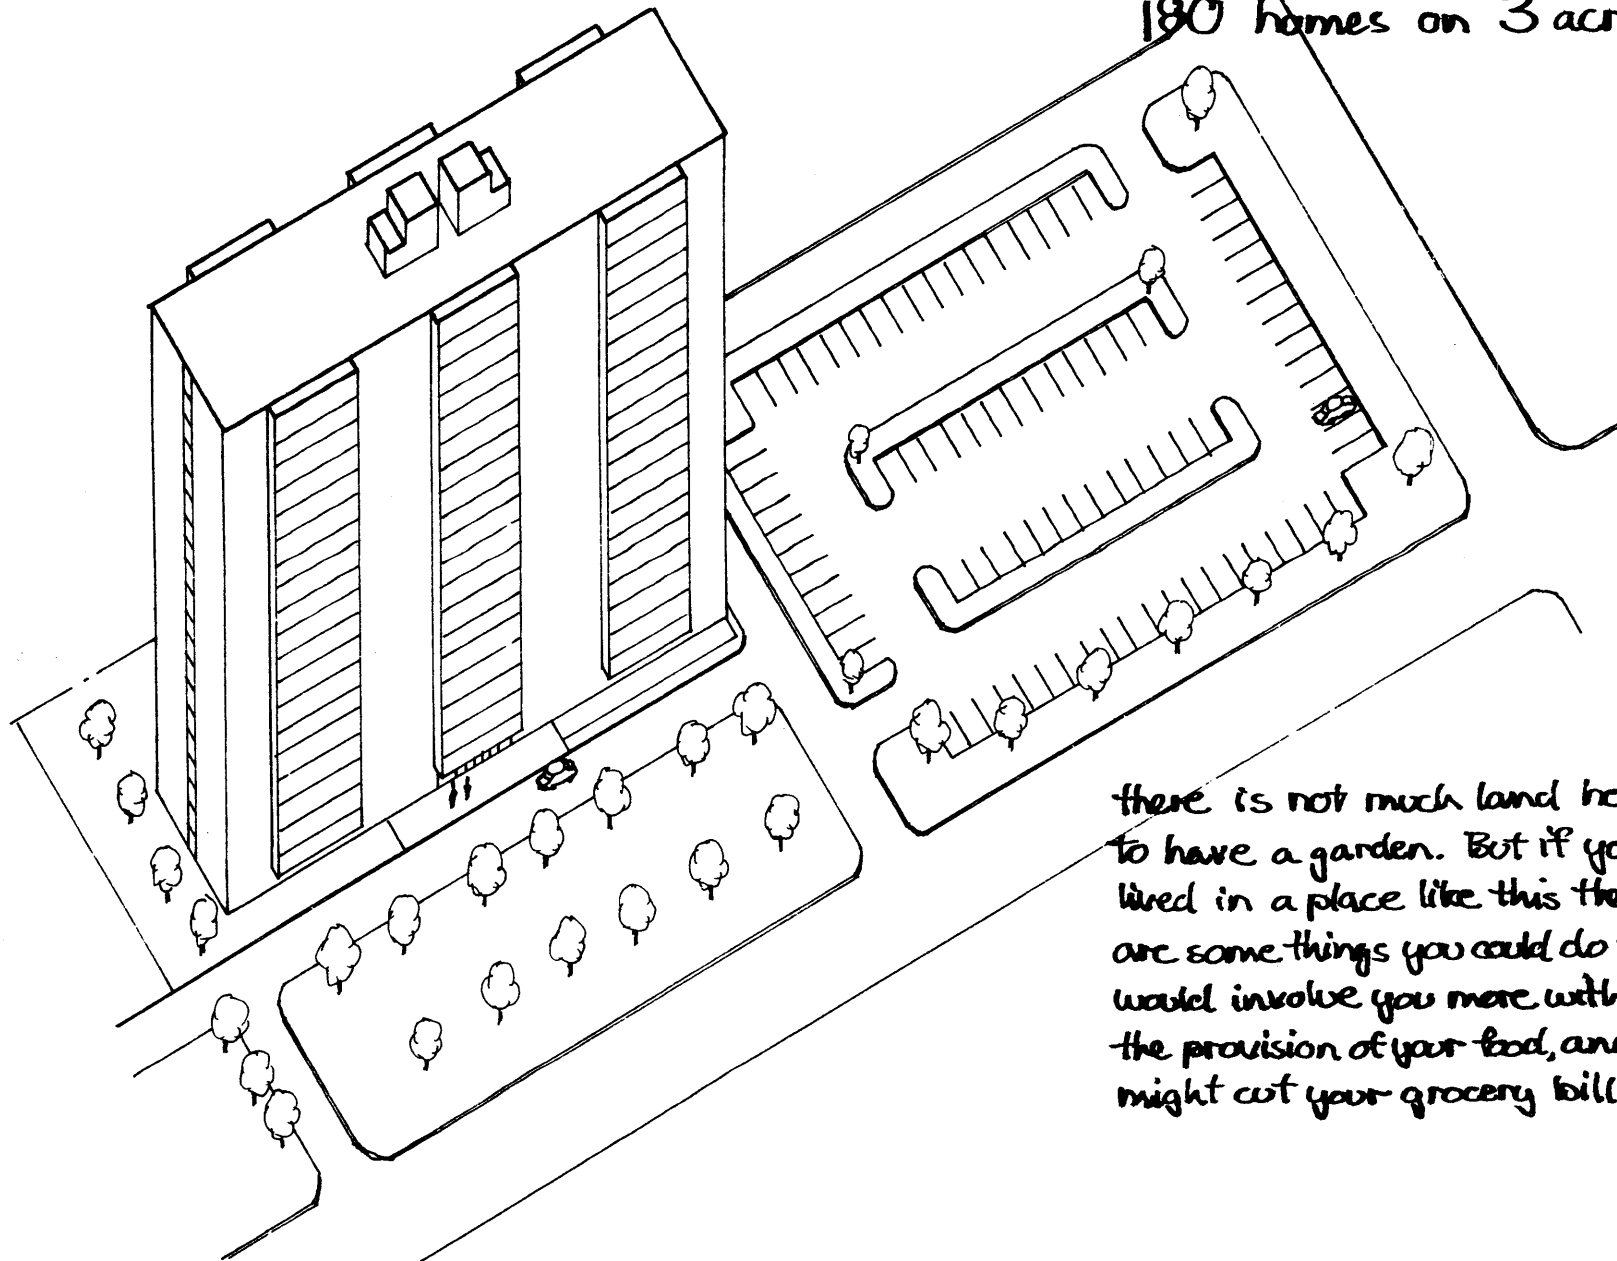 180 homes on 3 acr
there is not much land he
to have a garden. But if yo
lived in a place like this the
are some things you could do
would involve you more with
the provision of your food, and
might cut your grocery bill